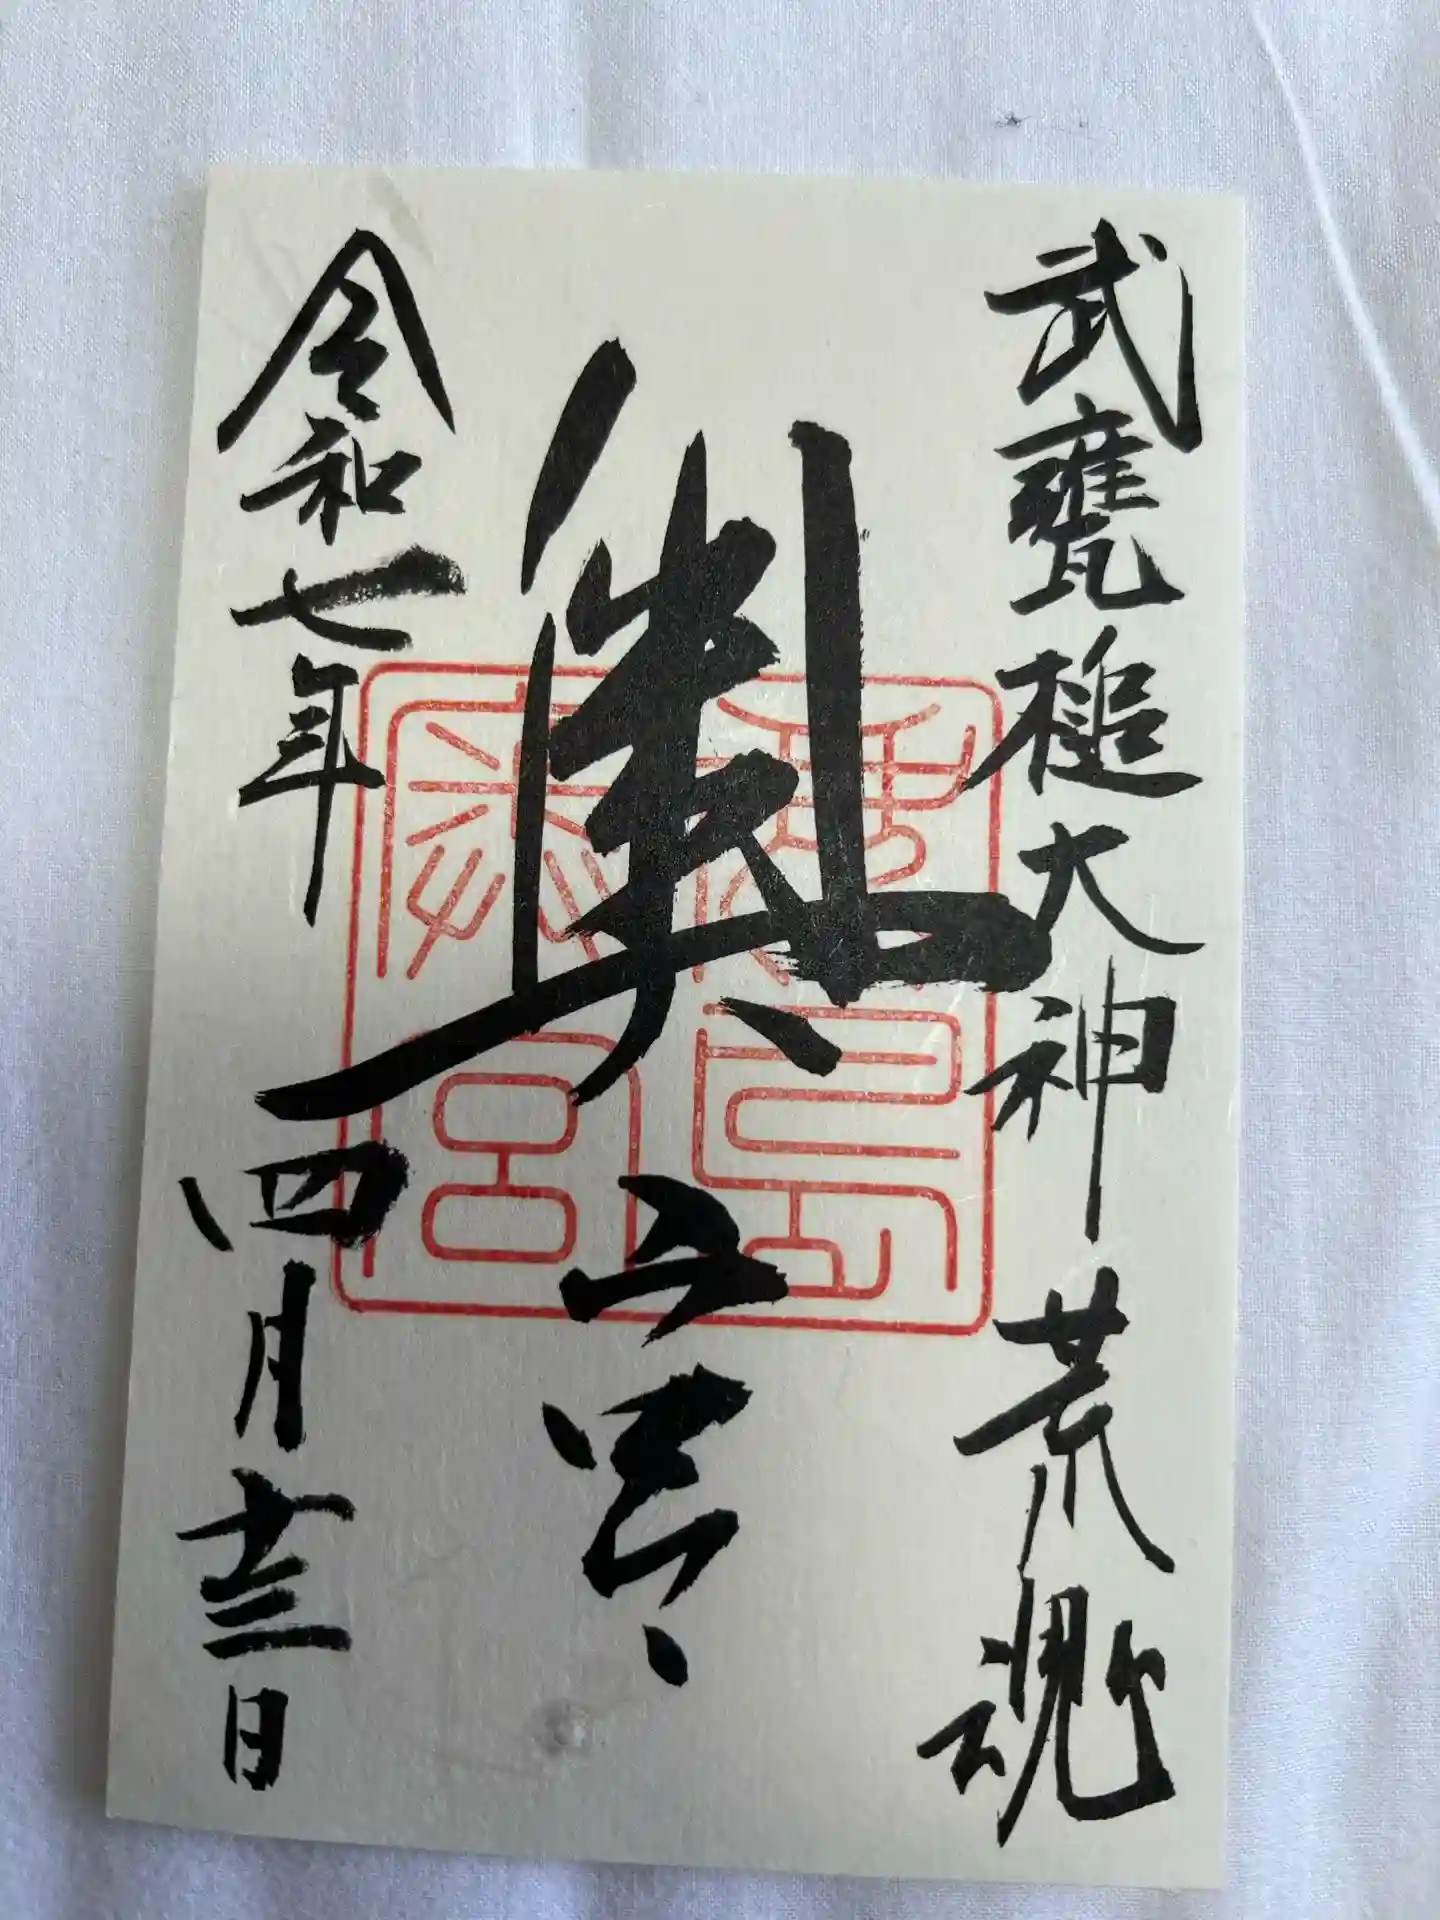 武甕槌大神荒魂
奥之宮
鹿島
奥宮
令和七年四月十三日